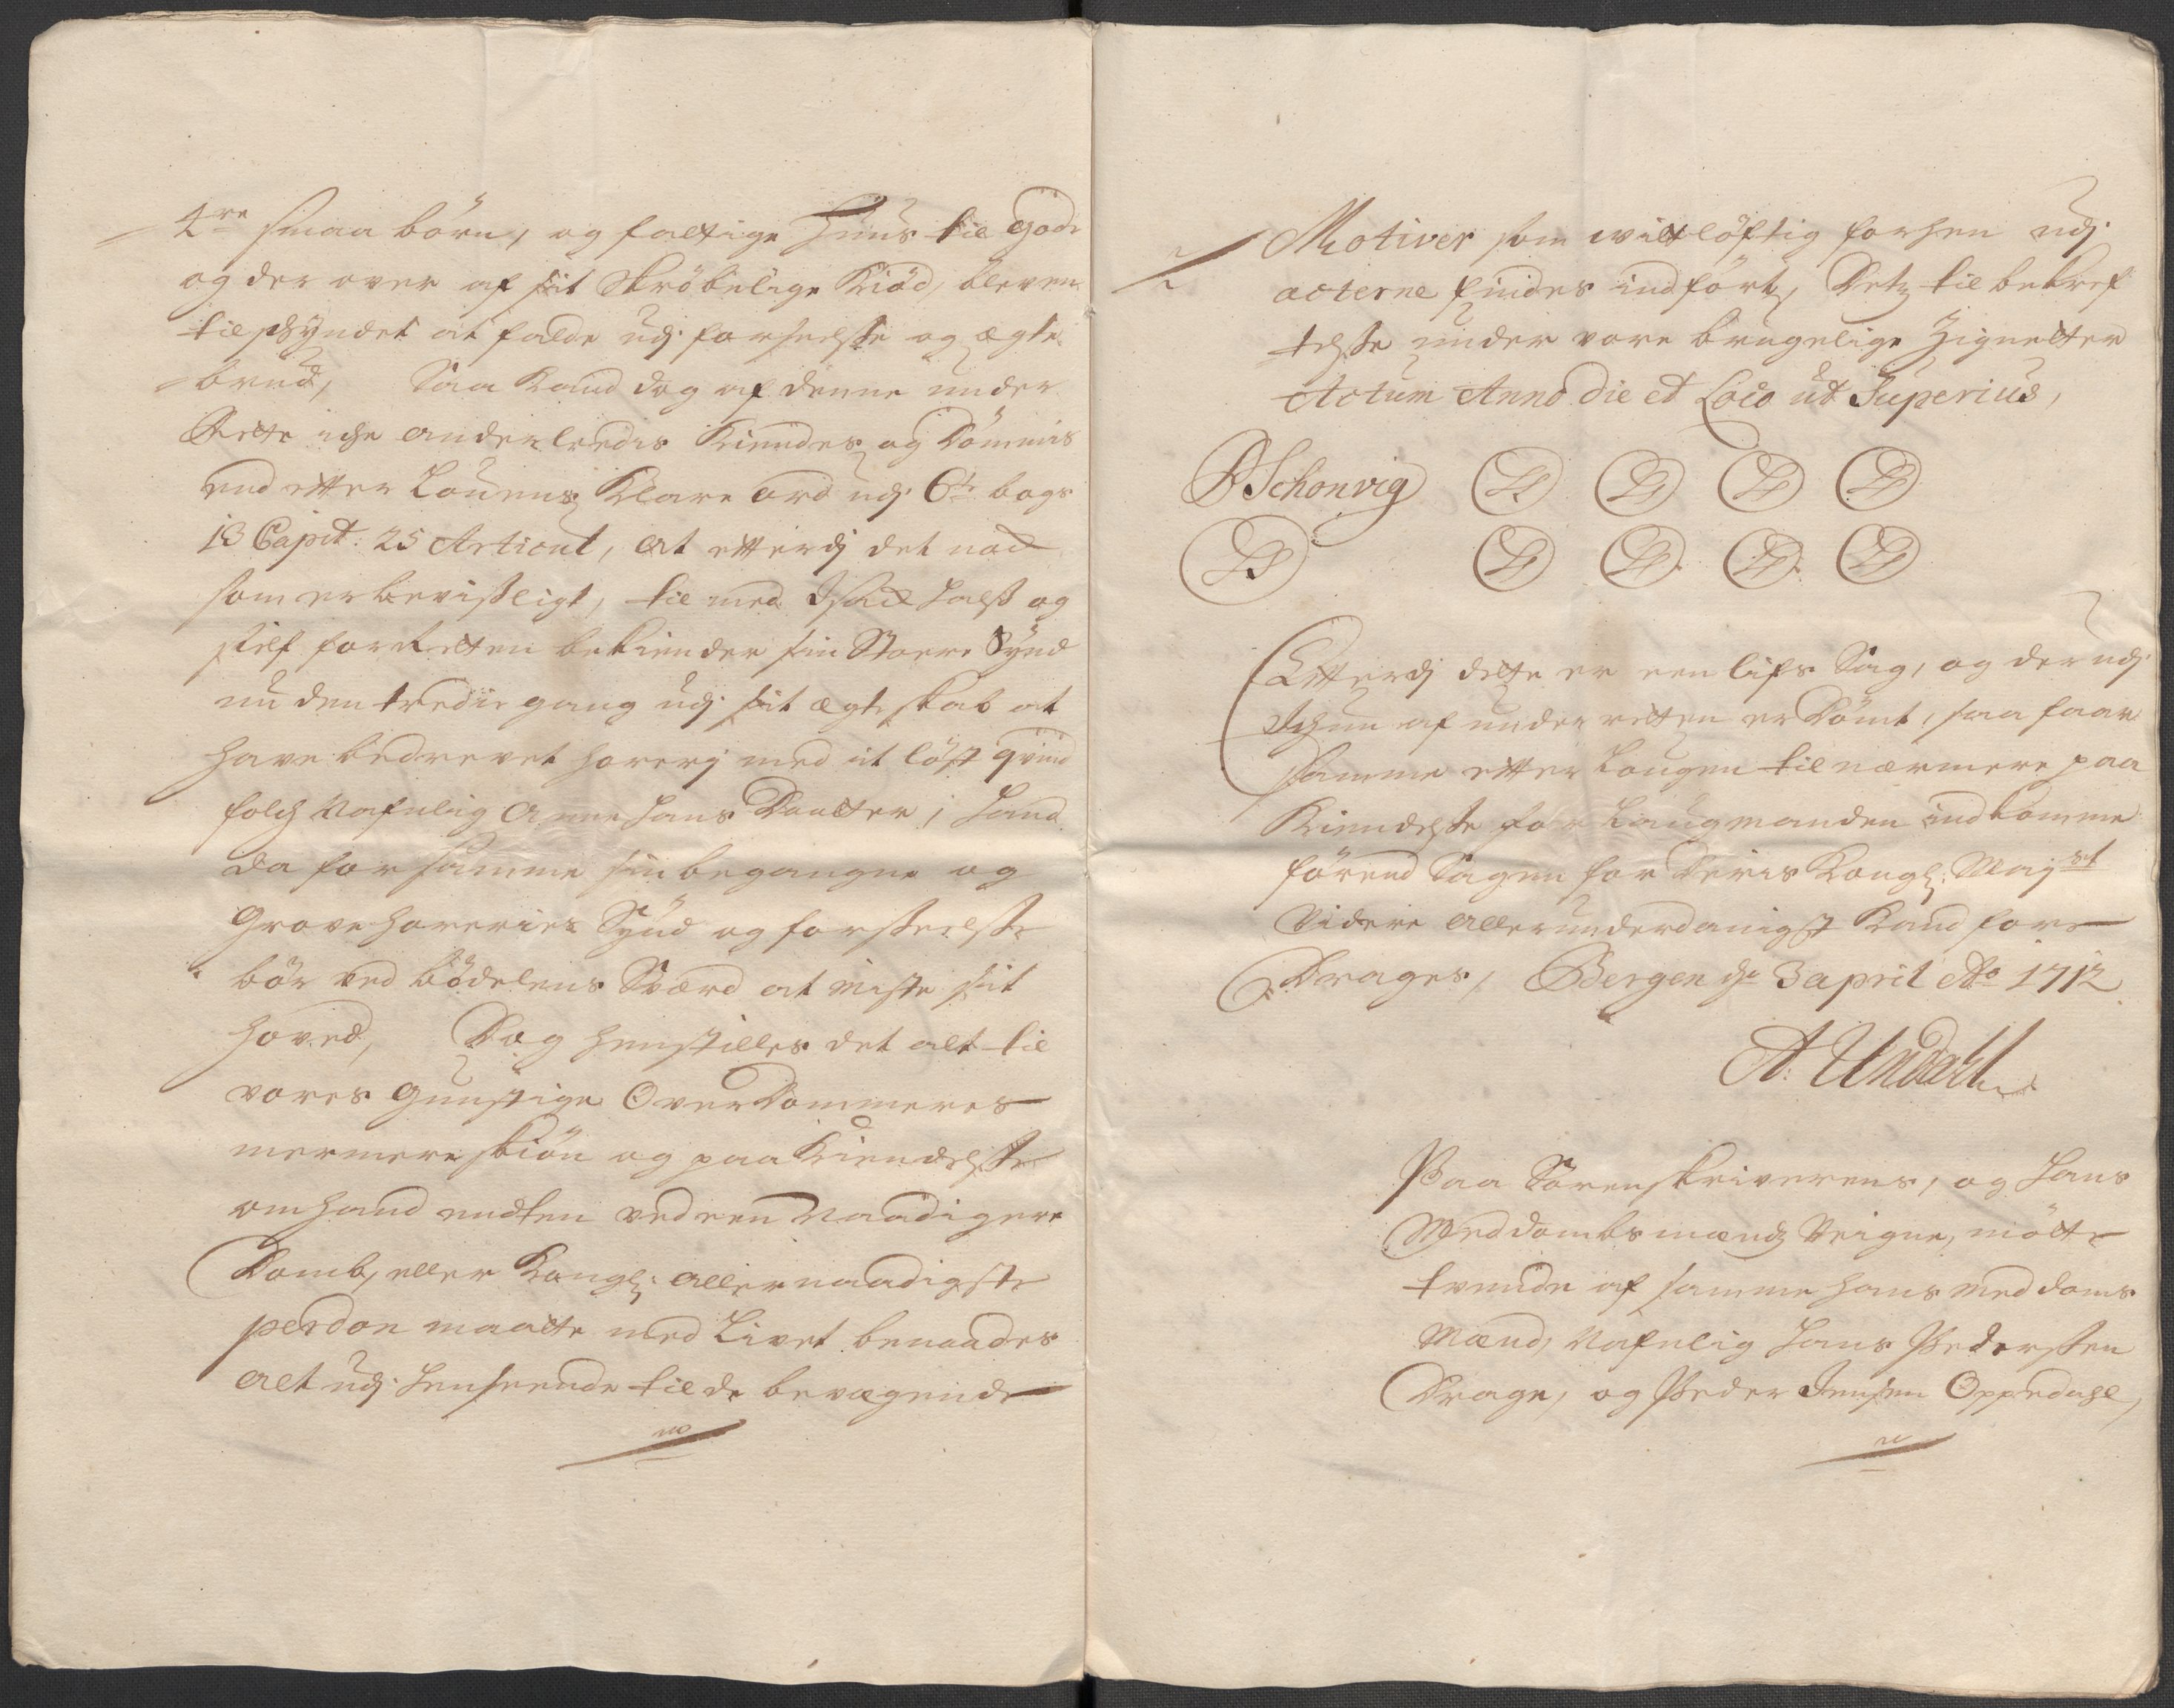 4re smaa börn, og fattige Huus til gode
og der over af sit Skröbelige Kiöd, bleven
tilskyndet at falde udj forseelsse og ægte
brud, Saa kand dog af denne under
Rette iche anderleedis Kiendes og Dömmis
end etter Louens Klare ord udj 6te bogs
13 Capit: 25 Articul, at etterdj det nock
som er bevissligt, til med
sielf for Retten bekiender sin Store Synd
nu den tredie gang udj sit ægteskab at
have bedrevet horerj med it löst qvind
folch Nafnlig Anne Hans Daatter, Hand
da for samme sin begangne og
Grove horeries Synd og forseelsse
bör ved bödelens Sværd at miste sit
hoved, Dog henstilles det alt til
vores gunstige OverDommeres
nermere skiön og paa Kiendelsse
om hand endten ved een Naadigere
Domb, eller Kongl: allernaadigste
perdon maatte med Livet benaades
alt udj Henseende til de bevægende
Motiver som vitlöftig forhen udj
acterne findes indfört, Dets til bekref
telsse under vore brugelige Zignetter
Actum Anno die et Loco ut Superius,
Schonvig LS LS LS LS
LS LS LS LS LS
Etterdj dette er een lifs Sag, og der udj
af under retten er Dömt, saa faar
samme etter Lougen til nærmere paa
Kiendelsse for Laugmanden indkomme
förend Sagen for Deris Kongl: Mayst
Videre allerunderdanigst Kand fore
Drages, Bergen de 3 april Ao 1712
A: Undall
Paa Sorenskriverens, og Hans
Meddombsmænds Veigne, mötte
tvende af samme hans meddoms
Mænd, Nafnlig Hans Pederssen
Drage, og Peder Jensen Oppedahl,